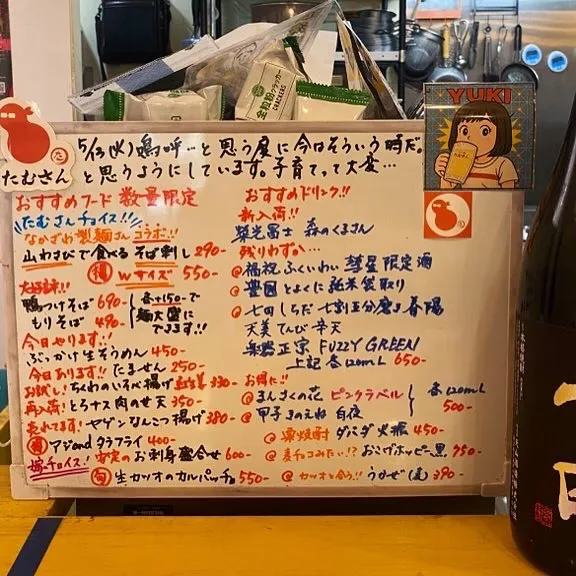 全粒粉クラッカー
CRACKERS
YUKI
たむさん
5/13(火) 嗚呼…と思う度に今はそういう時だ。
と思うようにしています。子育てって大変…
おすすめフード 数量限定
たむさんチョイス!!
ながざわ製麺さんコラボ!!
山わさびで食べるそば刺し 290-
得 Wサイズ 550-
大好評!!
鴨つけそば 690-
もりそば 490-
各+150-で
麺大盛に
できます!!
今日やります!!
ぶっかけ生そうめん 450-
今日あります!! たません 250-
お試し! ちくわのいそべ揚げ 紅生姜 330-
再入荷! とろナス肉のせ天 350-
売れてます! ヤゲンなんこつ揚げ 380-
得 アジandタラフライ 400-
安定のお刺身盛合せ 600-
チョイス!
旬 生カツオのカルパッチョ 550-
おすすめドリンク!!
新入荷!!
栄光冨士 森のくまさん
残りわずか…
福祝 ふくいわい 彗星 限定酒
豊圀 とよくに 純米 袋取り
七田 しちだ 七割五分磨き 春陽
天美 てんび 辛天
無路正宗 FUZZY GREEN
上記 各120mL 650-
お得に!!
まんさくの花 ピンクラベル
甲子 きのえね 白夜
各120mL
500-
栗焼酎 ダバダ火振 450-
麦チョコみたい!? おこげホッピー黒 750-
カツオと合う!! うかぜ(麦) 390-